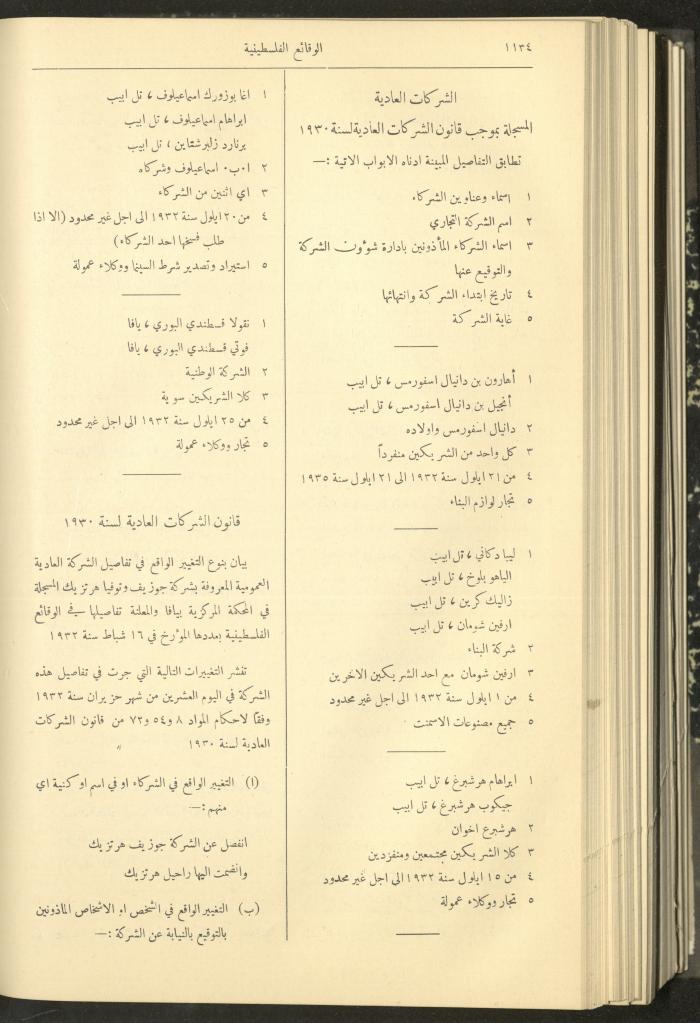 ١١٣٤
الوقائع الفلسطينية
الشركات العادية
المسجلة بموجب قانون الشركات العادية لسنة ١٩٣٠
تطابق التفاصيل المبينة ادناه الابواب الاتية :—
١ اسماء وعناوين الشركاء
٢ اسم الشركة التجاري
٣ اسماء الشركاء المأذونين بادارة شوٴون الشركة
والتوقيع عنها
٤ تاريخ ابتداء الشركة وانتهائها
٥ غاية الشركة
١ أهارون بن دانيال اسفورمس ، تل ابيب
أنجيل بن دانيال اسفورمس ، تل ابيب
٢ دانيال اسفورمس واولاده
٣ كل واحد من الشريكين منفرداً
٤ من ٢١ ايلول سنة ١٩٣٢ الى ٢١ ايلول سنة ١٩٣٥
٥ تجار لوازم البناء
١ ليبا دكاني ، تل ابيب
الياهو بلوخ ، تل ابيب
زاليك كرين ، تل ابيب
ارفين شومان ، تل ابيب
٢ شركة البناء
٣ ارفين شومان مع احد الشريكين الاخرين
٤ من ١ ايلول سنة ١٩٣٢ الى اجل غير محدود
٥ جميع مصنوعات الاسمنت
١ ابراهام هرشبرغ ، تل ابيب
جيكوب هرشبرغ ، تل ابيب
٢ هرشبرغ اخوان
٣ كلا الشريكين مجتمعين ومنفردين
٤ من ١٥ ايلول سنة ١٩٣٢ الى اجل غير محدود
٥ تجار ووكلاء عمولة
١ اغا بوزورك اسماعيلوف ، تل ابيب
ابراهام اسماعيلوف ، تل ابيب
برنارد زلبرشتاين ، تل ابيب
٢ ا٠ب٠ اسماعيلوف وشركاه
٣ اي اثنين من الشركاء
٤ من ٢٠ ايلول سنة ١٩٣٢ الى اجل غير محدود (الا اذا
طلب فسخها احد الشركاء)
٥ استيراد وتصدير شرط السينما ووكلاء عمولة
١ نقولا قسطندي البوري ، يافا
فوتي قسطندي البوري ، يافا
٢ الشركة الوطنية
٣ كلا الشريكين سوية
٤ من ٢٥ ايلول سنة ١٩٣٢ الى اجل غير محدود
٥ تجار ووكلاء عمولة
قانون الشركات العادية لسنة ١٩٣٠
بيان بنوع التغيير الواقع في تفاصيل الشركة العادية
العمومية المعروفة بشركة جوزيف وتوفيا هرتزيك المسجلة
في المحكمة المركزية بيافا والمعلنة تفاصيلها في الوقائع
الفلسطينية بعددها الموٴرخ في ١٦ شباط سنة ١٩٣٢
تنشر التغييرات التالية التي جرت في تفاصيل هذه
الشركة في اليوم العشرين من شهر حزيران سنة ١٩٣٢
وفقا لاحكام المواد ٨ و٥٤ و٧٢ من قانون الشركات
العادية لسنة ١٩٣٠
(ا) التغيير الواقع في الشركاء او في اسم او كنية اي
منهم :—
انفصل عن الشركة جوزيف هرتزيك
وانضمت اليها راحيل هرتزيك
(ب) التغيير الواقع في الشخص او الاشخاص المأذونين
بالتوقيع بالنيابة عن الشركة :—